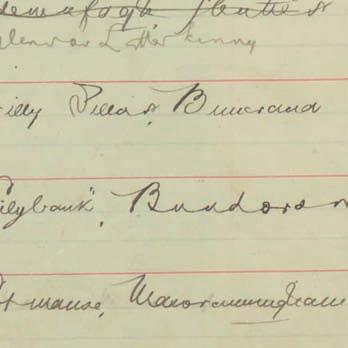 Glenties
Glenvar Letterkenny
illy Villas, Buncrana
ilybank", Bundoran
manse, Manorcunningham